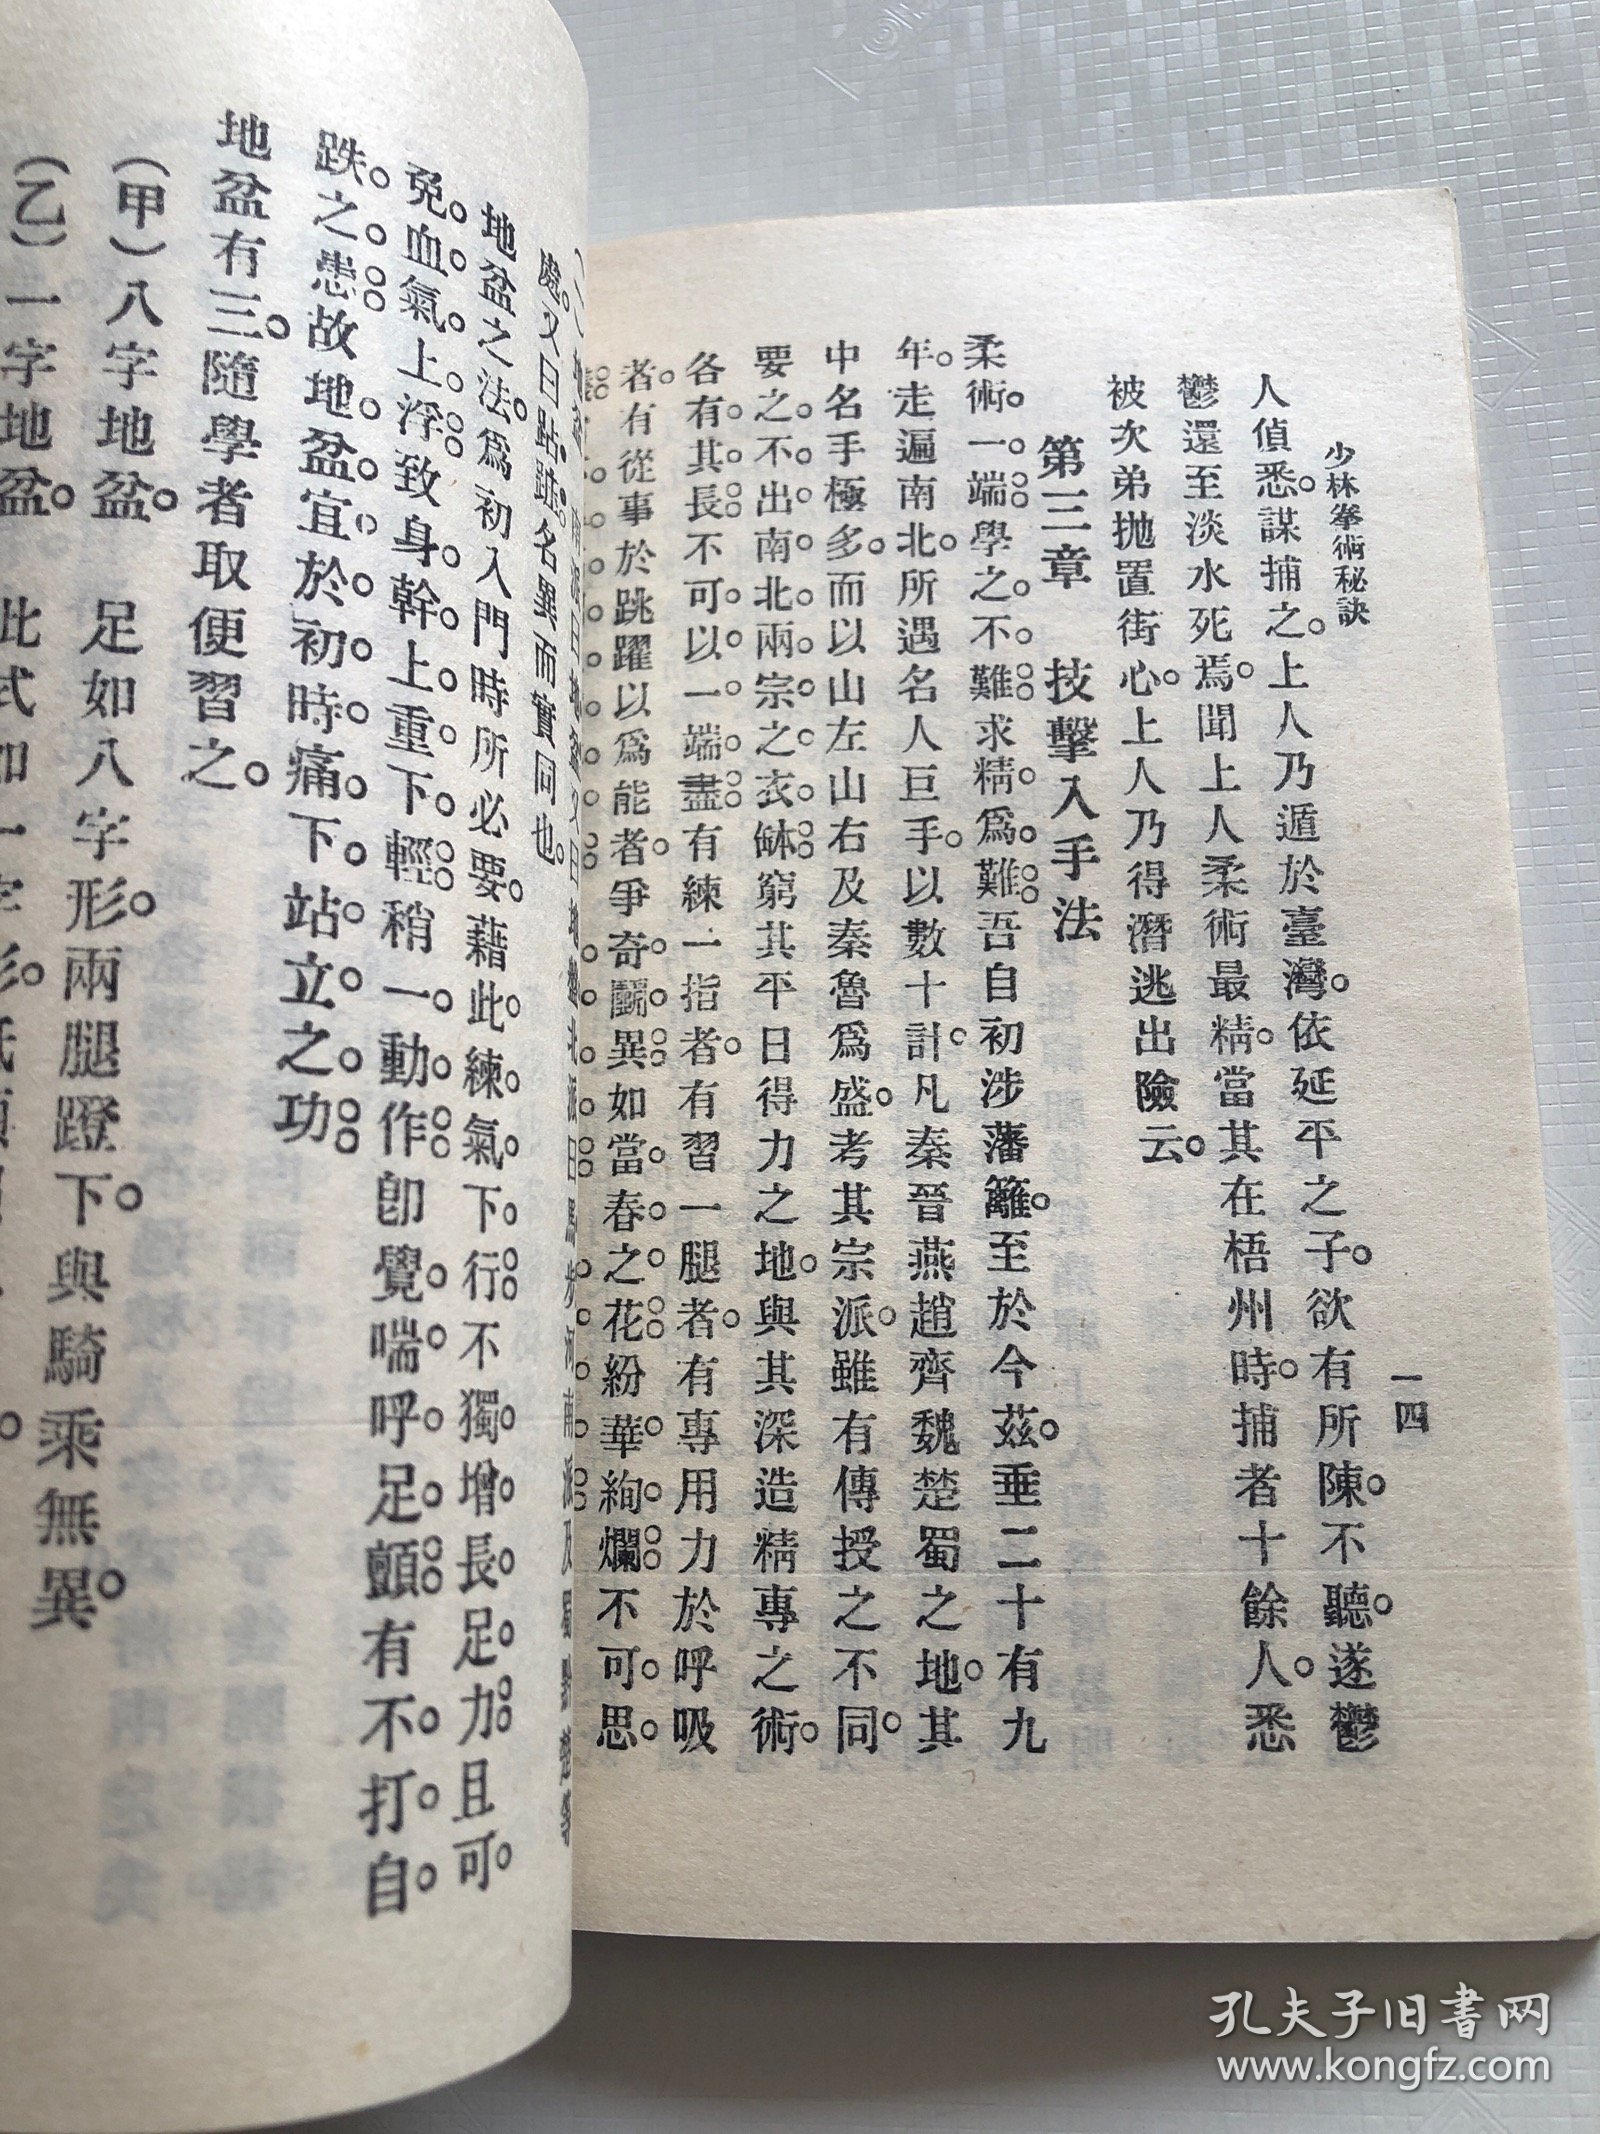 少林拳術秘訣
一四
人偵悉。謀捕之。上人乃遁於臺灣。依延平之子。欲有所陳。不聽。遂鬱
鬱還至淡水死焉。聞上人柔術最精。當其在梧州時。捕者十餘人。悉
被次弟抛置街心。上人乃得潛逃出險云。
第三章 技擊入手法
柔術一端。學之不難。求精爲難。吾自初涉藩籬。至於今茲。垂二十有九
年。走遍南北。所遇名人巨手。以數十計。凡秦晉燕趙齊魏楚蜀之地。其
中名手極多。而以山左山右及秦魯爲盛。考其宗派。雖有傳授之不同。
要之不出南北兩宗之衣缽。窮其平日得力之地。與其深造精專之術。
各有其長。不可以一端盡。有練一指者。有習一腿者。有專用力於呼吸
者。有從事於跳躍以爲能者。爭奇鬬異。如當春之花。紛華絢爛。不可思
處。又曰跕蹠。名異而實同也。
地盆之法。爲初入門時所必要。藉此練氣下行。不獨增長足力。且可
免血氣上浮。致身幹上重下輕。稍一動作。卽覺喘呼足顫。有不打自
跌之患。故地盆宜於初時痛下站立之功
地盆有三。隨學者取便習之。
（甲）八字地盆。 足如八字形。兩腿蹬下。與騎乘無異
（乙）一字地盆。 此式如一字形。
孔夫子旧书网
www.kongfz.com